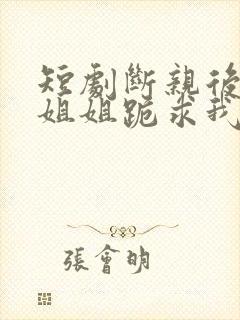 短劇斷親後
姐姐跪求我
張會明